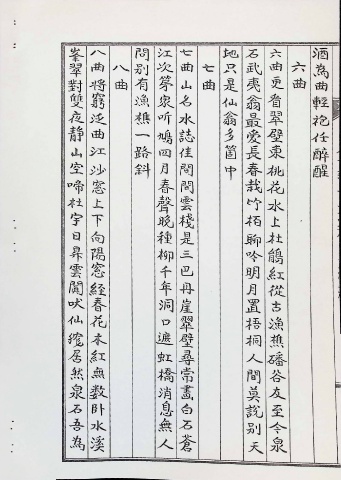 酒為曲輕袍任醉醒
六曲
六曲看翠壁東桃花水上杜鵑紅從古漁樵磻谷友至今泉
石武夷翁最愛長春栽竹栢聊吟明月置梧桐人間莫說別天
地只是仙翁多箇中
七曲
七曲山名水誌佳閒閒雲棧是三巴丹崖翠壁尋常畫白石蒼
江次第眾听鳩四月春聲晚種柳千年洞口遮虹橋消息無人
問別有漁樵一路斜
八曲
八曲將窮泛曲江沙窓上下向陽窓經春花木紅無數卧水溪
峯翠對雙夜靜山空啼杜宇日昇雲闢吠仙狵居然泉石吾為